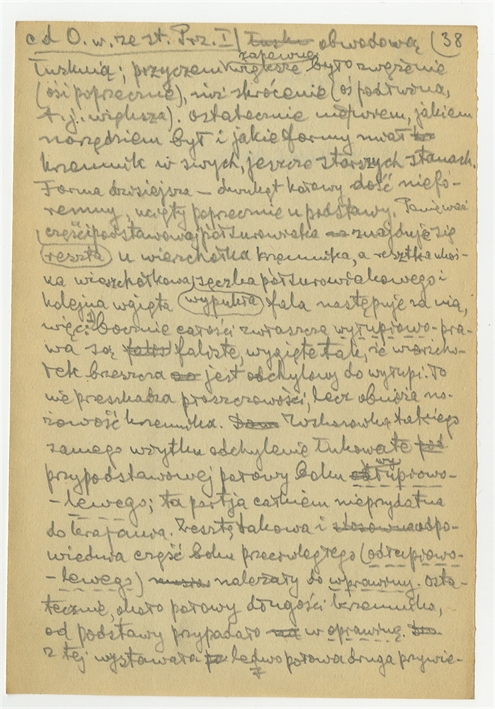 c d O. w. ze st. Prz. I) obwodową (38
łusknią; przyczem większe zapewne było zwężenie
(osi poprzecznej), niż skrócenie (o podłużna,
t. j. większa). Ostatecznie niepewnem, jakiem
narzędziem był i jakie formy miał
krzemnik w swych, jeszcze starszych stanach.
Forma dzisiejsza – dwukąt kołowy dość niefo-
remny, ucięty poprzecznie u podstawy. Ponieważ
części podstawowej półsurowiaka znajduje się
reszta u wierzchołka krzemnika, a resztka
ka wierzchołkowa, sęczka półsurowiakowego i
kolejna wgięta wypukła fala następuje za nią,
więc: bocznie całości zwłaszcza wyłupiowo-pra-
wa są faliste, wygięte tak, że wierzcho-
łek brzeszcza jest odchylony do wyłupi. To
nie przeszkadza płoszczowości, lecz obniża no-
żowość krzemnika. Wskazówką takiego
samego użytku odchylenie łukowate
przypodstawowej połowy boku wyłupiowo-
-lewego; ta partja całkiem nieprzydatna
do krajania. Zresztą takowa i odpo-
wiednia część boku przeciwległego (odłupiowo-
-lewego) należały do wprawiny. Osta-
tecznie, około połowy długości krzemnika,
od podstawy przypadało w oprawinę.
z tej wystawała ledwo połowa druga przywie-